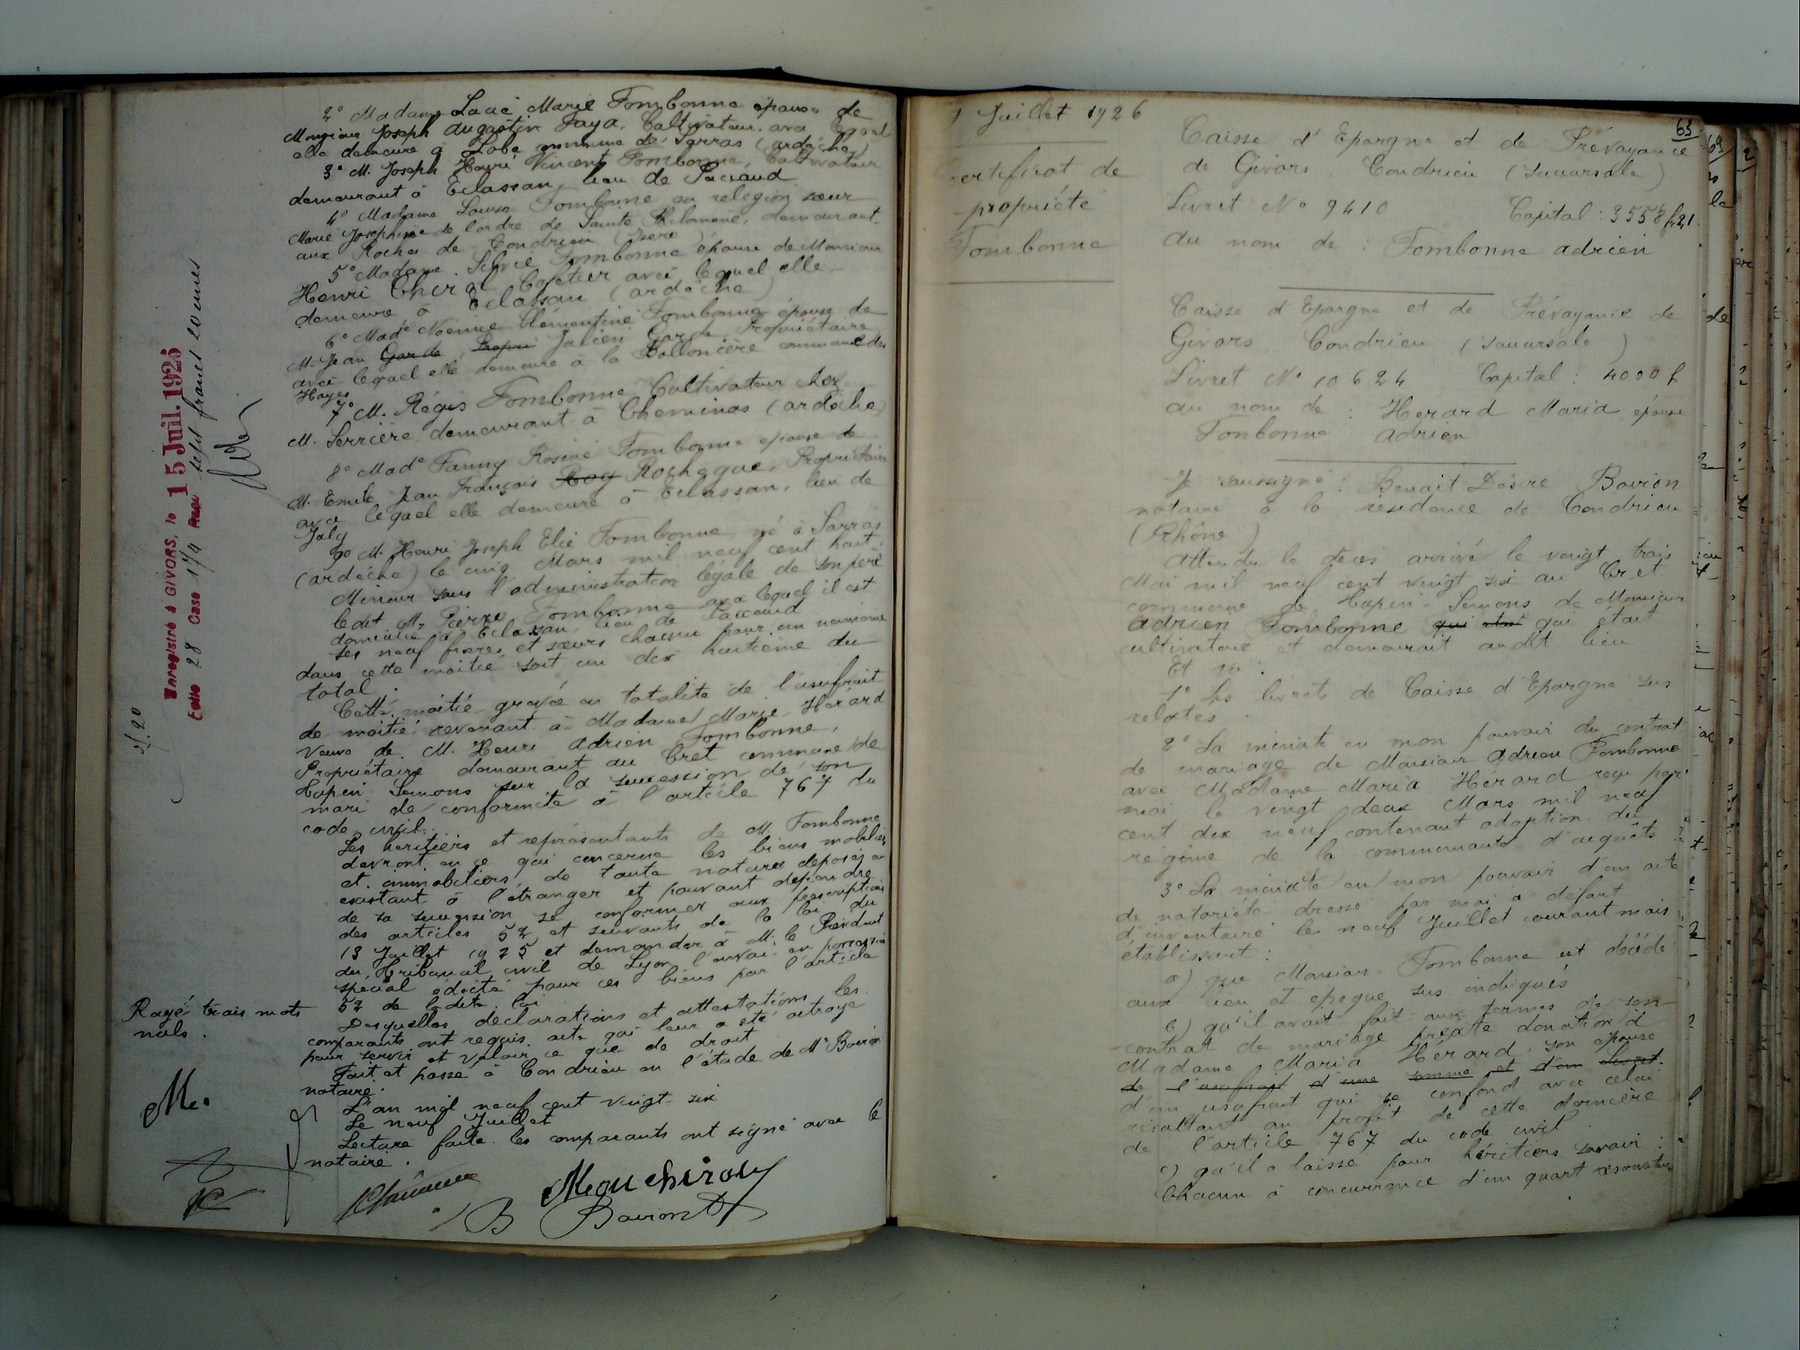 2° Madame Lucie Marie Fombonne épouse de
Monsieur Joseph Augustin Faya, Cultivateur avec lequel
elle demeure à Lobe commune de Sarras (ardèche)
3° M. Joseph Henri Vincent Fombonne, Cultivateur
demeurant à Eclassan, lieu de Paccaud
4° Madame Louise Fombonne en religion sœur
Marie Josephine de l'ordre de Sainte Philomène, demeurant
aux Roches de Condrieu (Isère)
5° Madame Silvie Fombonne épouse de Monsieur
Henri Cherol Cafetier avec lequel elle
demeure à Eclassan (ardèche)
6° Made Noémie Clémentine Fombonne épouse de
M. Jean Garde Propri Julien Garde, Propriétaire
avec lequel elle demeure à la commune des
Hayes
7° M. Régis Fombonne Cultivateur chez
M. Serrière demeurant à Cheminas (ardèche)
8° Made Fanny Rosine Fombonne épouse de
M. Emile Jean François Roq Rochegue, Propriétaire
avec lequel elle demeure à Eclassan, lieu de
Joly
9° M. Henri Joseph Elie Fombonne né à Sarras
(ardèche) le cinq Mars mil neuf cent huit
Mineur sous l'administration légale de son père
ledit M. Pierre Fombonne avec lequel il est
domicilié à Eclassan, lieu de Paccaud
Ses neuf frères et sœurs chacun pour un neuvième
dans cette moitié soit un dix huitième du
total.
Cette moitié grevée en totalité de l'usufruit
de moitié revenant à Madame Marie Hérard
Veuve de M. Henri Adrien Fombonne,
Propriétaire demeurant au Cret commune de
Tupin Semons sur la succession de son
mari de conformité à l'article 767 du
code civil.
Les héritiers et représentants de M. Fombonne
devront en ce qui concerne les biens mobiliers
et immobiliers de toute nature déposés ou
existant à l'étranger et pouvant dépendre
de sa succession se conformer aux prescriptions
des articles 52 et suivants de la loi du
13 Juillet 1925 et demander à M. le Président
du Tribunal civil de Lyon l'envoi en possession
spécial édicté pour ces biens par l'article
52 de ladite loi
Desquelles déclarations et attestations les
comparants ont requis acte qui leur a été octroyé
pour servir et valoir ce que de droit
Fait et passé à Condrieu en l'étude de Me Boiron
notaire.
L'an mil neuf cent vingt six
Le neuf Juillet
Lecture faite les comparants ont signé avec le
notaire.
Mouchiroud
Boiron
Rayé trois mots
nuls.
Enregistré à GIVORS, le 15 Juil. 1926
Folio 28 Case 174 Reçu sept francs 20 cmes
7f.20
Juillet 1926
certificat de
propriété
Fombonne
63
Caisse d'Epargne et de Prévoyance
de Givors Condrieu (Succursale)
Livret No 9410 Capital : 3558f,21
au nom de : Fombonne Adrien
Caisse d'Epargne et de Prévoyance de
Givors Condrieu (Succursale)
Livret No 10624 Capital : 4000 f
au nom de : Herard Maria épouse
Fombonne Adrien
Je soussigné : Benoit Désiré Boiron
notaire à la résidence de Condrieu
(Rhône)
Attendu le décès arrivé le vingt trois
Mai mil neuf cent vingt six au Cret
commune de Tupin-Semons de Monsieur
Adrien Fombonne qui était qui était
cultivateur et demeurait audit lieu
Et vu :
1° Les livrets de Caisse d'Epargne sus
relatés.
2° La minute en mon pouvoir du contrat
de mariage de Monsieur Adrien Fombonne
avec Madame Maria Hérard reçu par
moi le vingt deux Mars mil neuf
cent dix neuf contenant adoption du
régime de la communauté d'acquêts
3° La minute en mon pouvoir d'un acte
de notoriété dressé par moi à défaut
d'inventaire le neuf Juillet courant mois
établissant :
a) que Monsieur Fombonne est décédé
aux lieu et époque sus indiqués
b) qu'il avait fait aux termes de son
contrat de mariage précité donation à
Madame Maria Hérard, son épouse
de l'usufruit d'une somme et d'un
d'un usufruit qui se confond avec celui
résultant au profit de cette dernière
de l'article 767 du code civil
c) qu'il a laissé pour héritiers savoir :
Chacun à concurrence d'un quart réservataire